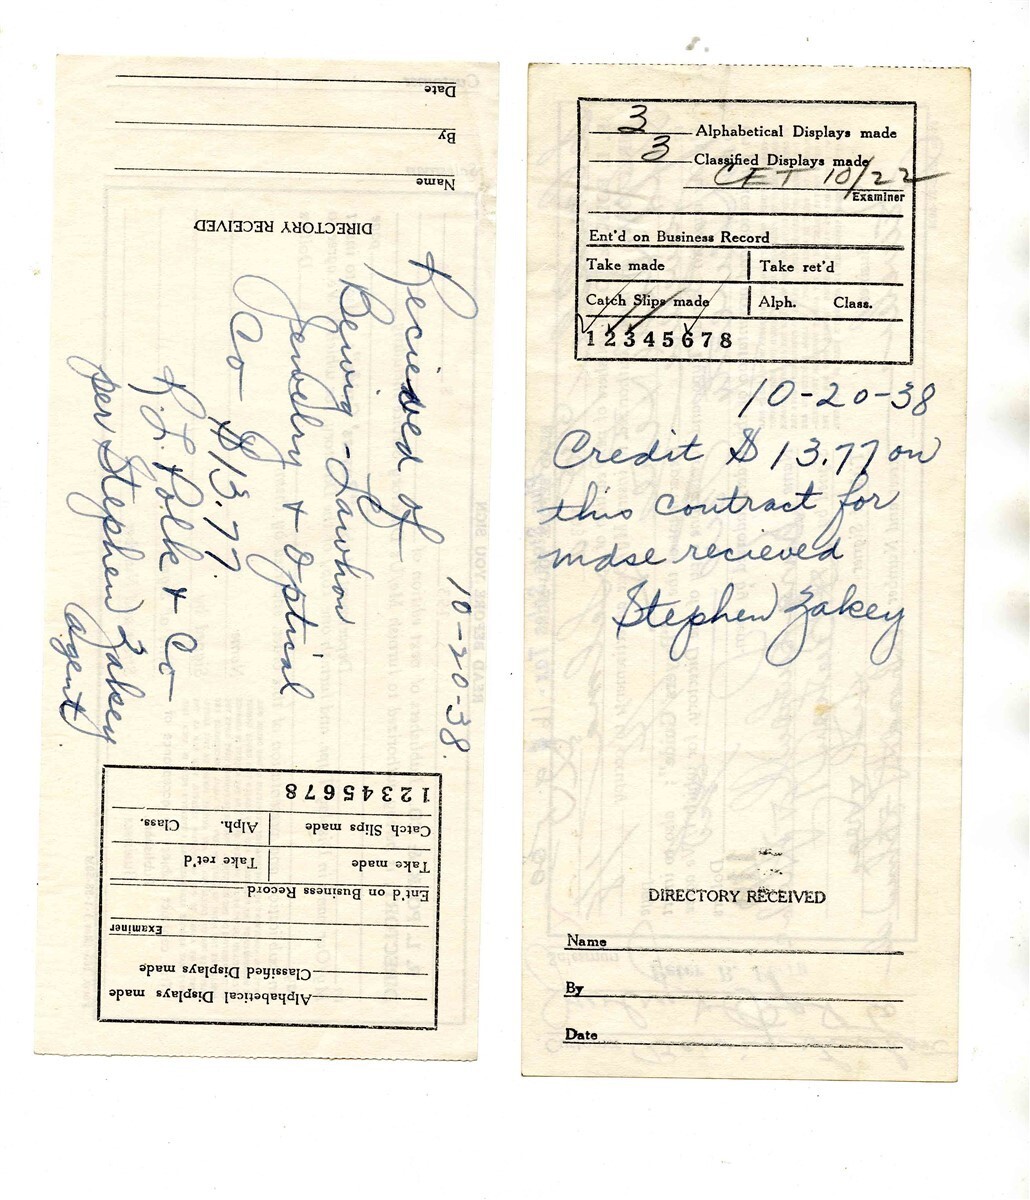 Date
By
Name
DIRECTORY RECEIVED
10-20-38
Recieved of
Bewig-Lawhon
Jewelry + Optical
Co $13.77
R. L. Polk + Co
per Stephen Zakey
agent
1 2 3 4 5 6 7 8
Catch Slips made Alph. Class.
Take made Take ret'd
Ent'd on Business Record
Examiner
Classified Displays made
Alphabetical Displays made
3 Alphabetical Displays made
3 Classified Displays made
CET 10/22
Examiner
Ent'd on Business Record
Take made Take ret'd
Catch Slips made Alph. Class.
1 2 3 4 5 6 7 8
10-20-38
Credit $13.77 on
this contract for
mdse recieved
Stephen Zakey
DIRECTORY RECEIVED
Name
By
Date